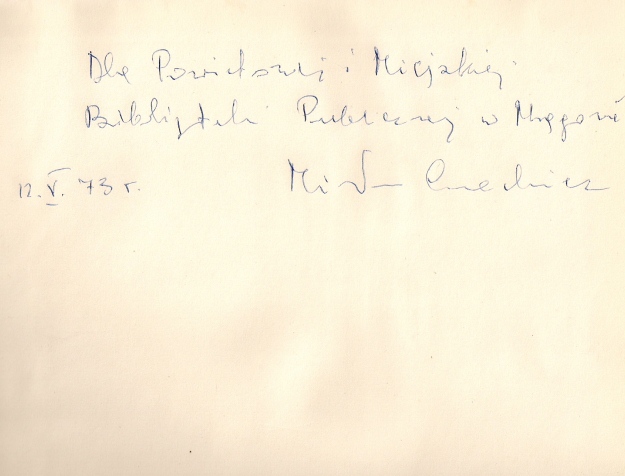 Dla Powiatowej i Miejskiej
Biblioteki Publicznej w Mrągowie
12.V. 73 r.